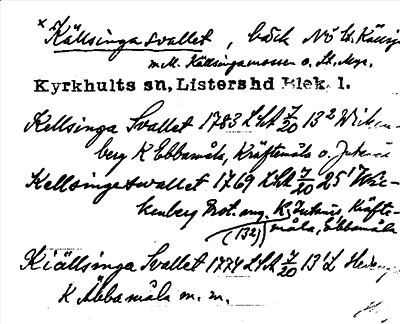 Källsinga svallet, bäck NÖ St. Källsj
m. M. Källsingamossen o. St. Myr.
Kyrkhults sn, Listershd Blek. l.
Kellsinga Svallet 1783 LSA 7/20 13² Wicken-
berg K Ebbamåla, Kräftemåla o.
Kellsinge swallet 1769 LSA 7/20 25¹ Wic-
kenberg Prot. ang. K. Kräfte-
(132) måla, Ebbamåla
Kiällsinga Svallet 1774 LSA 7/20 13¹
K Åbbamåla m. m.